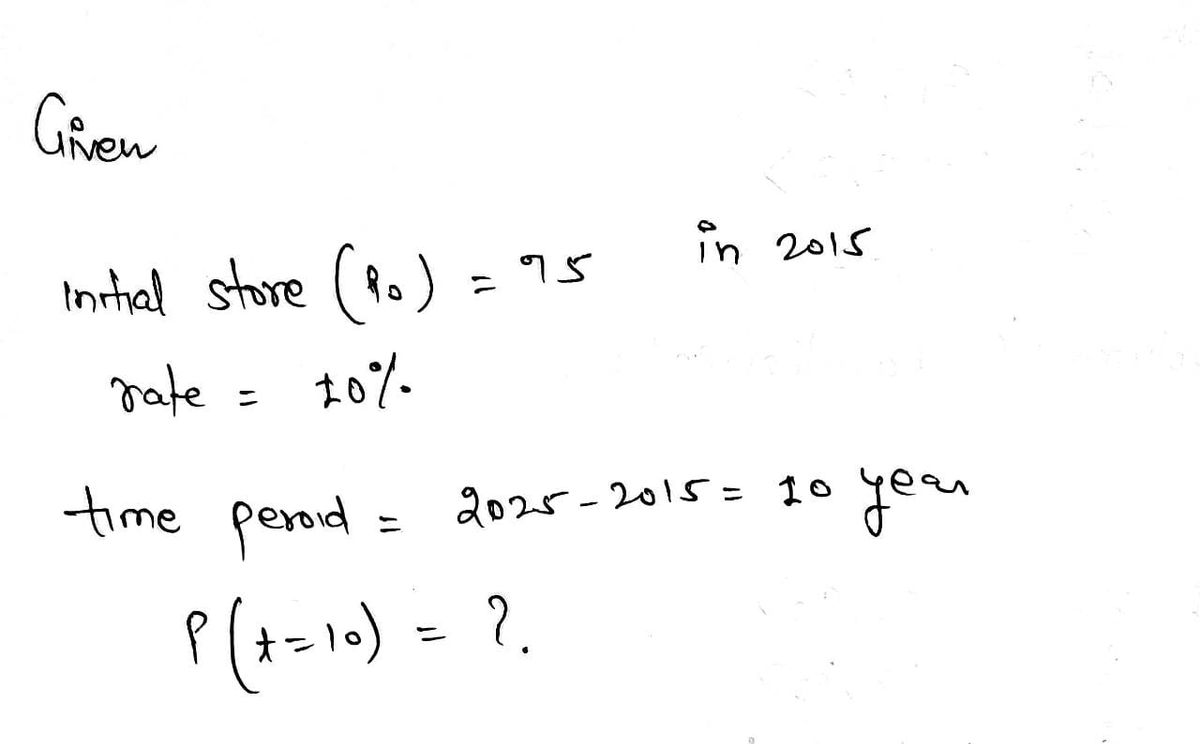 Given
Initial store (P₀) = 95 in 2015
rate = 10%
time peroid = 2025 - 2015 = 10 year
P(t=10) = ?.